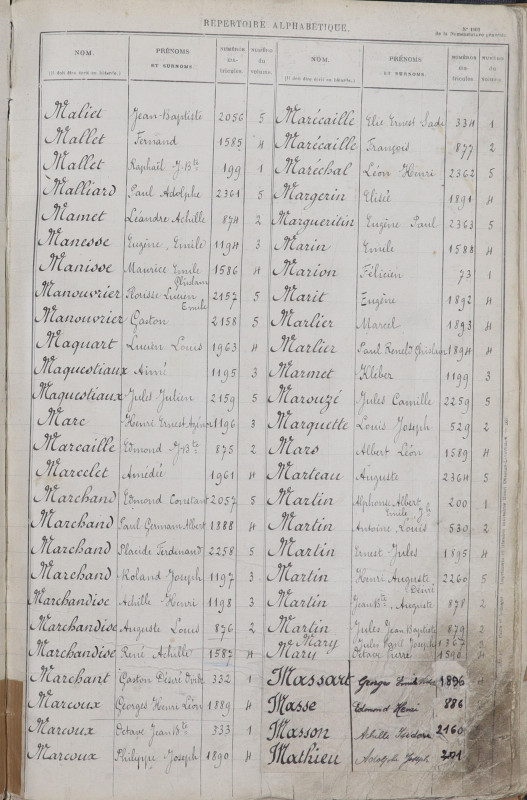 RÉPERTOIRE ALPHABÉTIQUE.
de la Nomenclature générale.
NOM. PRÉNOMS ET SURNOMS NUMÉROS matricules. NUMÉROS du volume. NOM. PRÉNOMS ET SURNOMS NUMÉROS matricules. NUMÉROS du volume.
(Il doit être écrit en bâtarde.) (Il doit être écrit en bâtarde.)
Maliet Jean-Baptiste 2056 5 Marécaille Elie Ernest Sadi 334 1
Mallet Fernand 1585 4 Marécaille François 877 2
Mallet Raphaël J-Bte 199 1 Maréchal Léon Henri 2362 5
Malliard Paul Adolphe 2361 5 Margerin Elisée 1891 4
Mamet Léandre Achille 874 2 Margueritin Eugène Paul 2363 5
Manesse Eugène Emile 1194 3 Marin Emile 1588 4
Manisse Maurice Emile Ghislain 1586 4 Marion Félicien 73 1
Manouvrier Florisse Lucien Emile 2157 5 Marit Eugène 1892 4
Manouvrier Gaston 2158 5 Marlier Marcel 1893 4
Maquart Lucien Louis 1963 4 Marlier Paul René Ghislain 1894 4
Maquestiaux Aimé 1195 3 Marmet Kléber 1199 3
Maquestiaux Jules Julien 2159 5 Marouzé Jules Camille 2259 5
Marc Henri Ernest 1196 3 Marquette Louis Joseph 529 2
Marcaille Edmond J-Bte 875 2 Mars Albert Léon 1589 4
Marcelet Amédée 1961 4 Marteau Auguste 2364 5
Marchand Edmond Constant 2057 5 Martin Alphonse Albert Emile 200 1
Marchand Paul Germain Albert 1888 4 Martin Antoine Louis 530 2
Marchand Placide Ferdinand 2258 5 Martin Ernest Jules 1895 4
Marchand Roland Joseph 1197 3 Martin Henri Auguste Désiré 2260 5
Marchandise Achille Henri 1198 3 Martin Jean Bte Auguste 878 2
Marchandise Auguste Louis 876 2 Martin Jules Jean Baptiste 879 2
Marchandise René Achille 1587 4 Mary Jules Joseph
Mary Octave Pierre 1590 4
Marchant Gaston Désiré 332 1 Massart Georges 1896
Marcoux Georges Henri Léon 1889 4 Masse Edmond Henri 886
Marcoux Octave Jean Bte 333 1 Masson Achille Isidore 2160
Marcoux Philippe Joseph 1890 4 Mathieu Adolphe Joseph